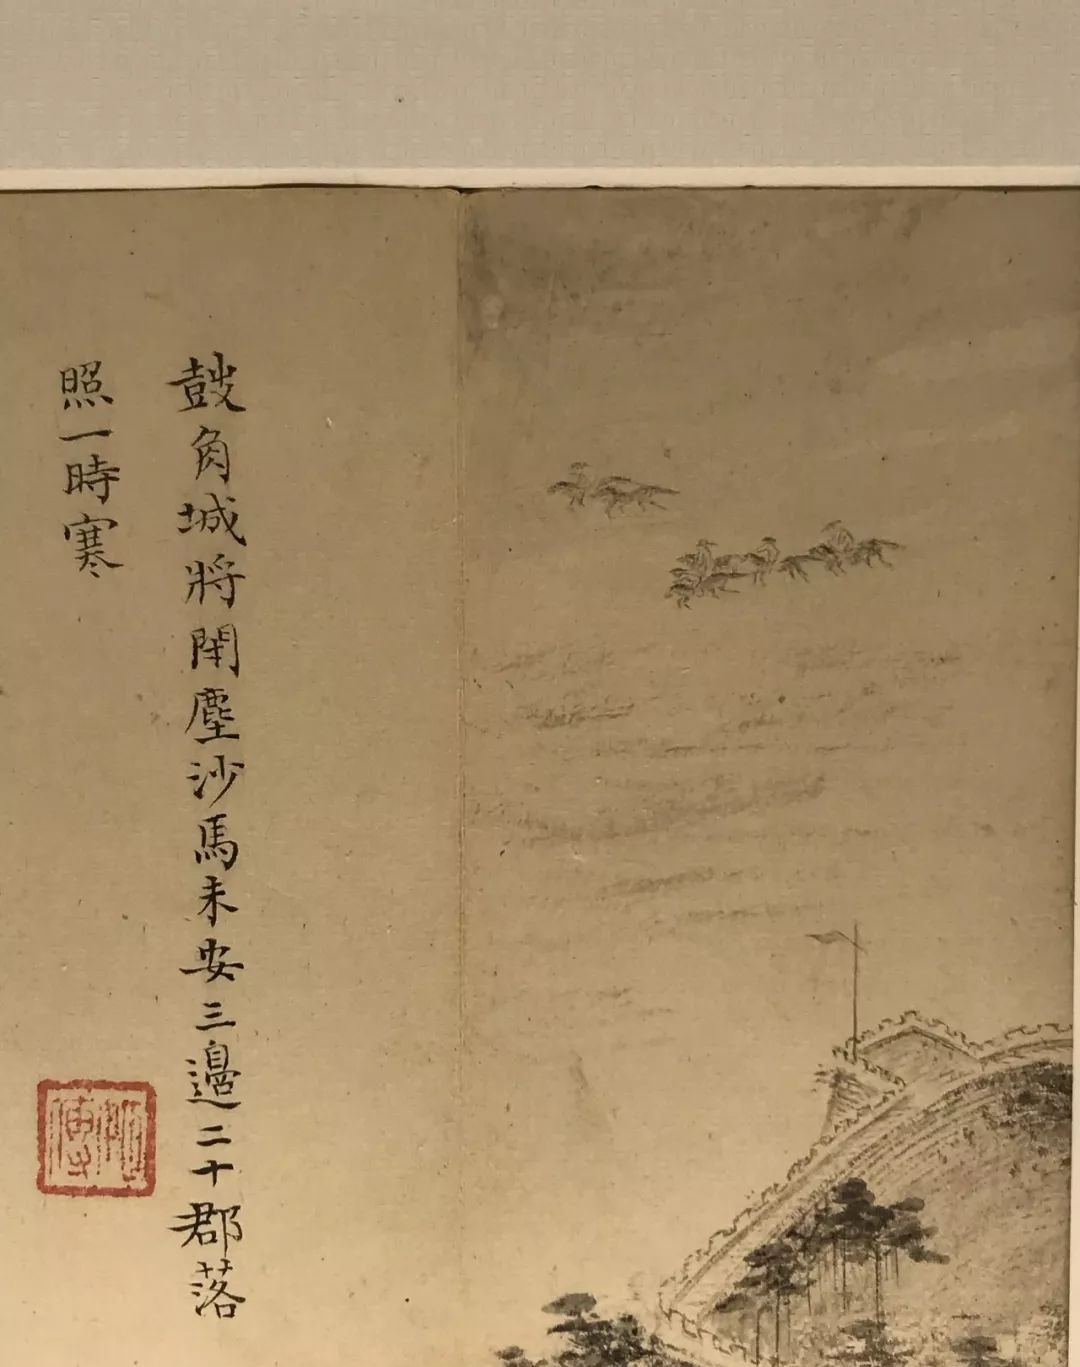 鼓角城將閉塵沙馬未安三邉二十郡落
照一時寒